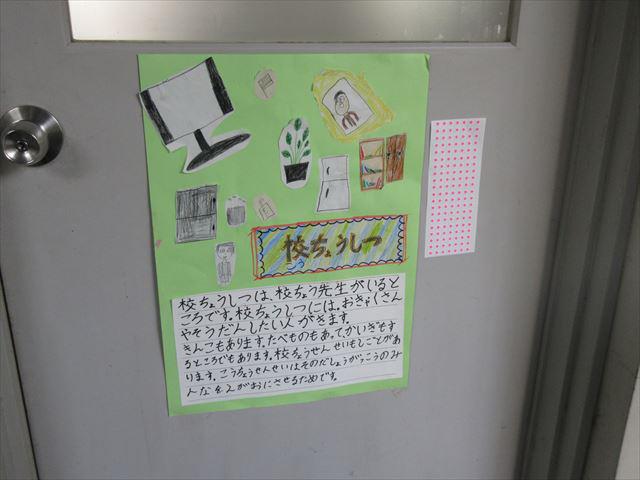 校ちょうしつ
校ちょうしつは、校ちょう先生がいると
ころです。校ちょうしつには、おきゃくさん
やそうだんしたい人がきます。
きんこもあります。たべものもあって、かいぎもす
るところでもあります。校ちょうせんせいもしごとがあ
ります。こうちょうせんせいはそのだしょうがっこうのみ
んなをえがおにさせるためです。